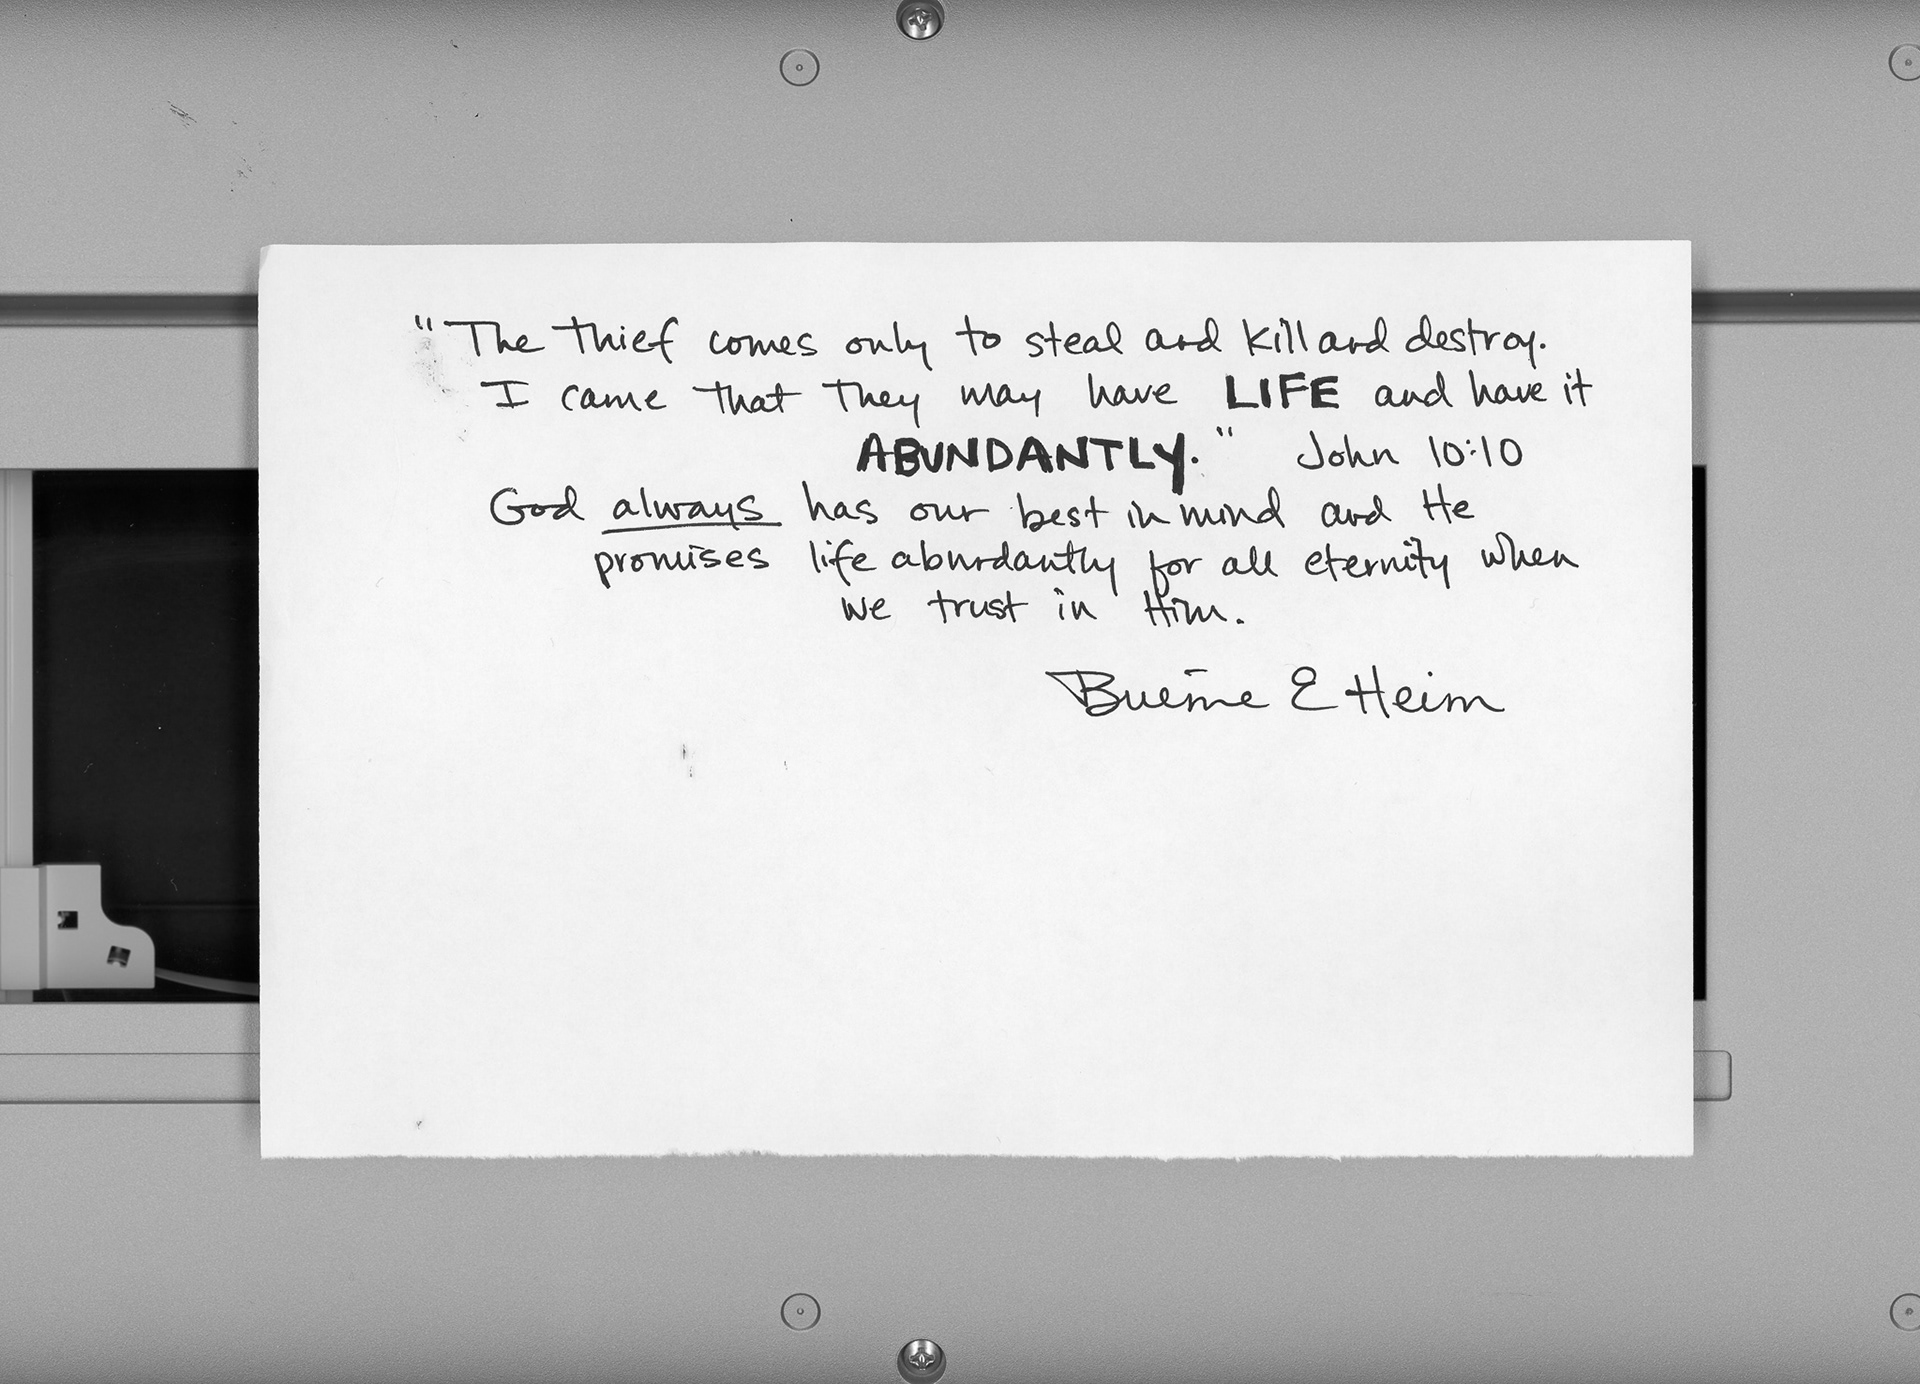 "The thief comes only to steal and kill and destroy.
I came that they may have LIFE and have it
ABUNDANTLY." John 10:10
God always has our best in mind and He
promises life abundantly for all eternity when
we trust in Him.
E Heim